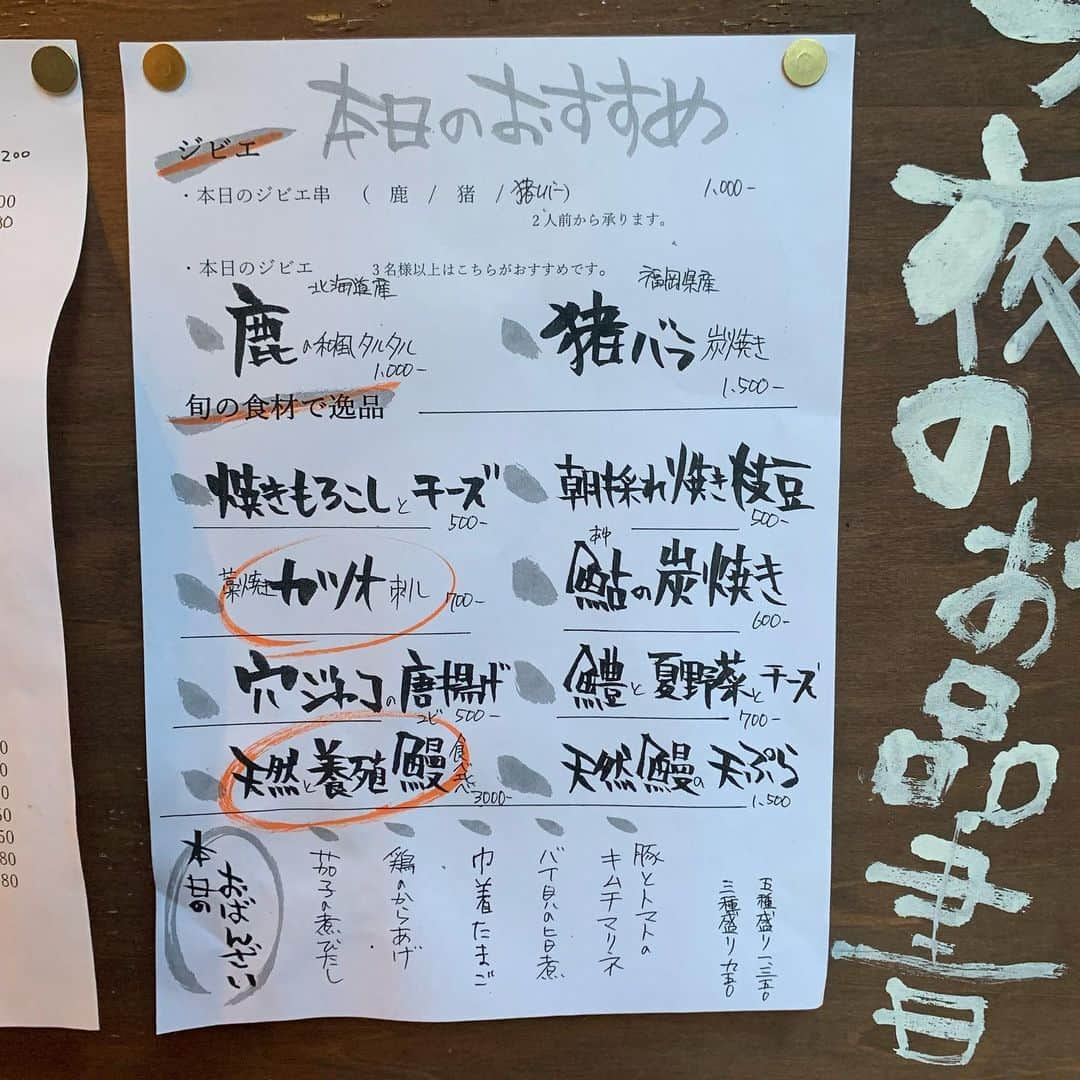 本日のおすすめ
ジビエ
・本日のジビエ串 ( 鹿 / 猪 / 猪レバー) 1,000-
2人前から承ります。
・本日のジビエ 3名様以上はこちらがおすすめです。
北海道産
鹿の和風タルタル
1,000-
福岡県産
猪バラ炭焼き
1,500-
旬の食材で逸品
焼きもろこしとチーズ
500-
朝採れ焼き枝豆
500-
藁焼きカツオ刺し
700-
あゆ
鮎の炭焼き
600-
穴ジャコの唐揚げ
500-
鱧と夏野菜とチーズ
700-
天然と養殖鰻食べ比べ
3000-
天然鰻の天ぷら
1,500
本日の
おばんざい
茄子の煮びたし
鶏のからあげ
巾着たまご
バイ貝の旨煮
豚とトマトの
キムチマリネ
三種盛り九五〇
五種盛り一、三五〇
夜のお品書
200
00
80
0
0
0
50
50
80
80